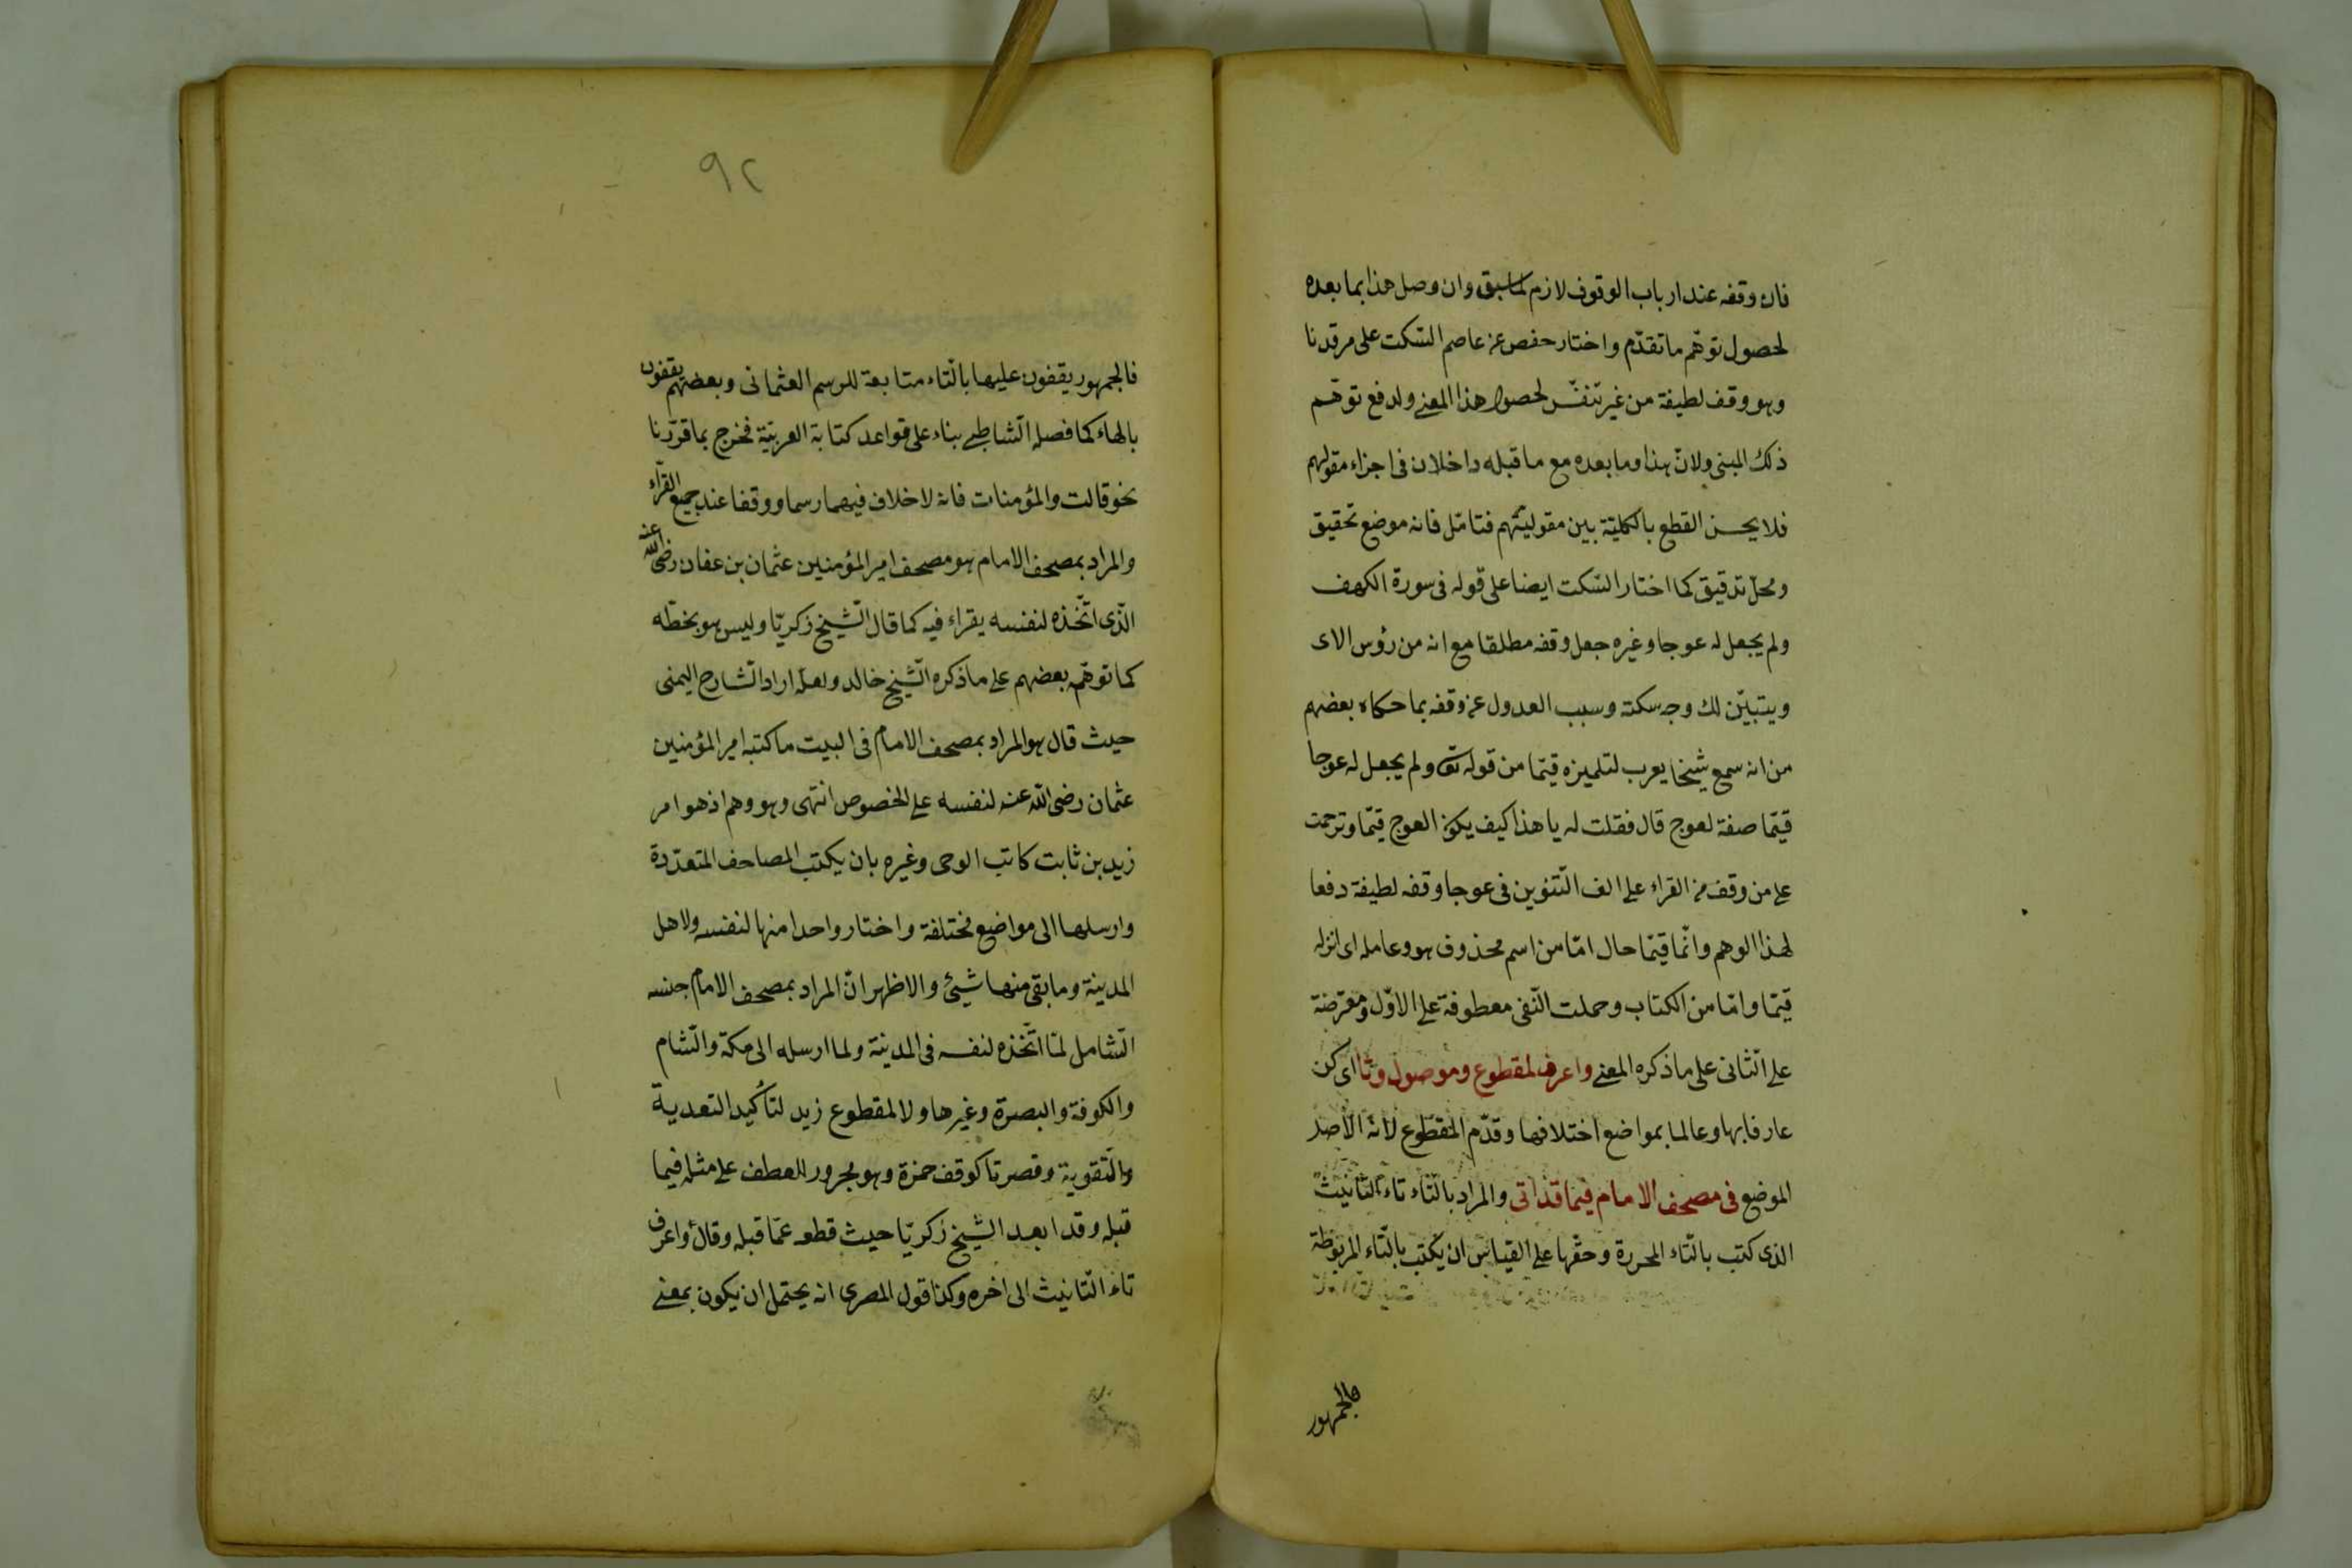 فان وقفه عند ارباب الوقوف لازم لما سبق وان وصل هذا بما بعده
لحصول توهّم ما تقدّم واختار حفص عن عاصم السّكت على مرقدنا
وهو وقف لطيفة من غير تنفّس لحصول هذا المعنى ولدفع توهّم
ذلك المبنى ولانّ هذا وما بعده مع ما قبله داخلان فى اجزاء مقولهم
فلا يحسن القطع بالكليّة بين مقوليتهم فتامّل فانه موضع تحقيق
ومحلّ تدقيق كما اختار السّكت ايضا على قوله فى سورة الكهف
ولم يجعل له عوجا وغيره جعل وقفه مطلقا مع انه من رؤس الاى
ويتبيّن لك وجه سكته وسبب العدول عن وقفه بما حكاه بعضهم
من انه سمع شيخا يعرب لتلميزه قيّما من قوله تع ولم يجعل له عوجا
قيّما صفة لعوج قال فقلت له يا هذا كيف يكون العوج قيّما وترحمت
على من وقف من القراء على الف التّنوين فى عوجا وقفه لطيفة دفعا
لهذا الوهم وانّما قيّما حال امّا من اسم محذوف هو وعامله اى انزله
قيّما وامّا من الكتاب وجملت النّفى معطوفة على الاوّل ومعترضة
على الثّانى على ما ذكره المعنى واعرف لمقطوع وموصول وتا اى كن
عارفا بها وعالما بمواضع اختلافها وقدّم المقطوع لانّه الاصل
الموضع فى مصحف الامام فيما قد اتى والمراد بالتّاء تاء التّانيث
الذى كتب بالتّاء المجررة وحقّها على القياس ان يكتب بالتّاء المربوطة
فالجمهور
٩٢
فالجمهور يقفون عليها بالتّاء متابعة للرسم العثمانى وبعضهم يقفون
بالهاء كما فصله الشّاطبى بناء على قواعد كتابة العربيّة فخرج بما قرّرنا
نحو قالت والمؤمنات فانه لا خلاف فيهما رسما ووقفا عند جميع القرّاء
والمراد بمصحف الامام هو مصحف امير المؤمنين عثمان بن عفان رضى الله عنه
الّذى اتّخذه لنفسه يقراء فيه كما قال الشّيخ زكريّا وليس هو بخطّه
كما توهّم بعضهم على ما ذكره الشّيخ خالد ولعلّه اراد الشّارح اليمنى
حيث قال هو المراد بمصحف الامام فى البيت ما كتبه امير المؤمنين
عثمان رضى الله عنه لنفسه على الخصوص انتهى وهو وهم اذ هو امر
زيد بن ثابت كاتب الوحى وغيره بان يكتب المصاحف المتعدّدة
وارسلها الى مواضع مختلفة واختار واحدا منها لنفسه ولاهل
المدينة وما بقى منها شيئ والاظهر انّ المراد بمصحف الامام جنسه
الشّامل لمّا اتّخذه لنفسه فى المدينة ولما ارسله الى مكّة والشّام
والكوفة والبصرة وغيرها ولا لمقطوع زيد لتأكيد التعدية
والتّقوية وقصر تا كوقف حمزة وهو مجرور للعطف على مثله فيما
قبله وقد ابعد الشّيخ زكريّا حيث قطعه عمّا قبله وقال واعرف
تاء التّانيث الى اخره وكذا قول المصرى انه يحتمل ان يكون بمعنى